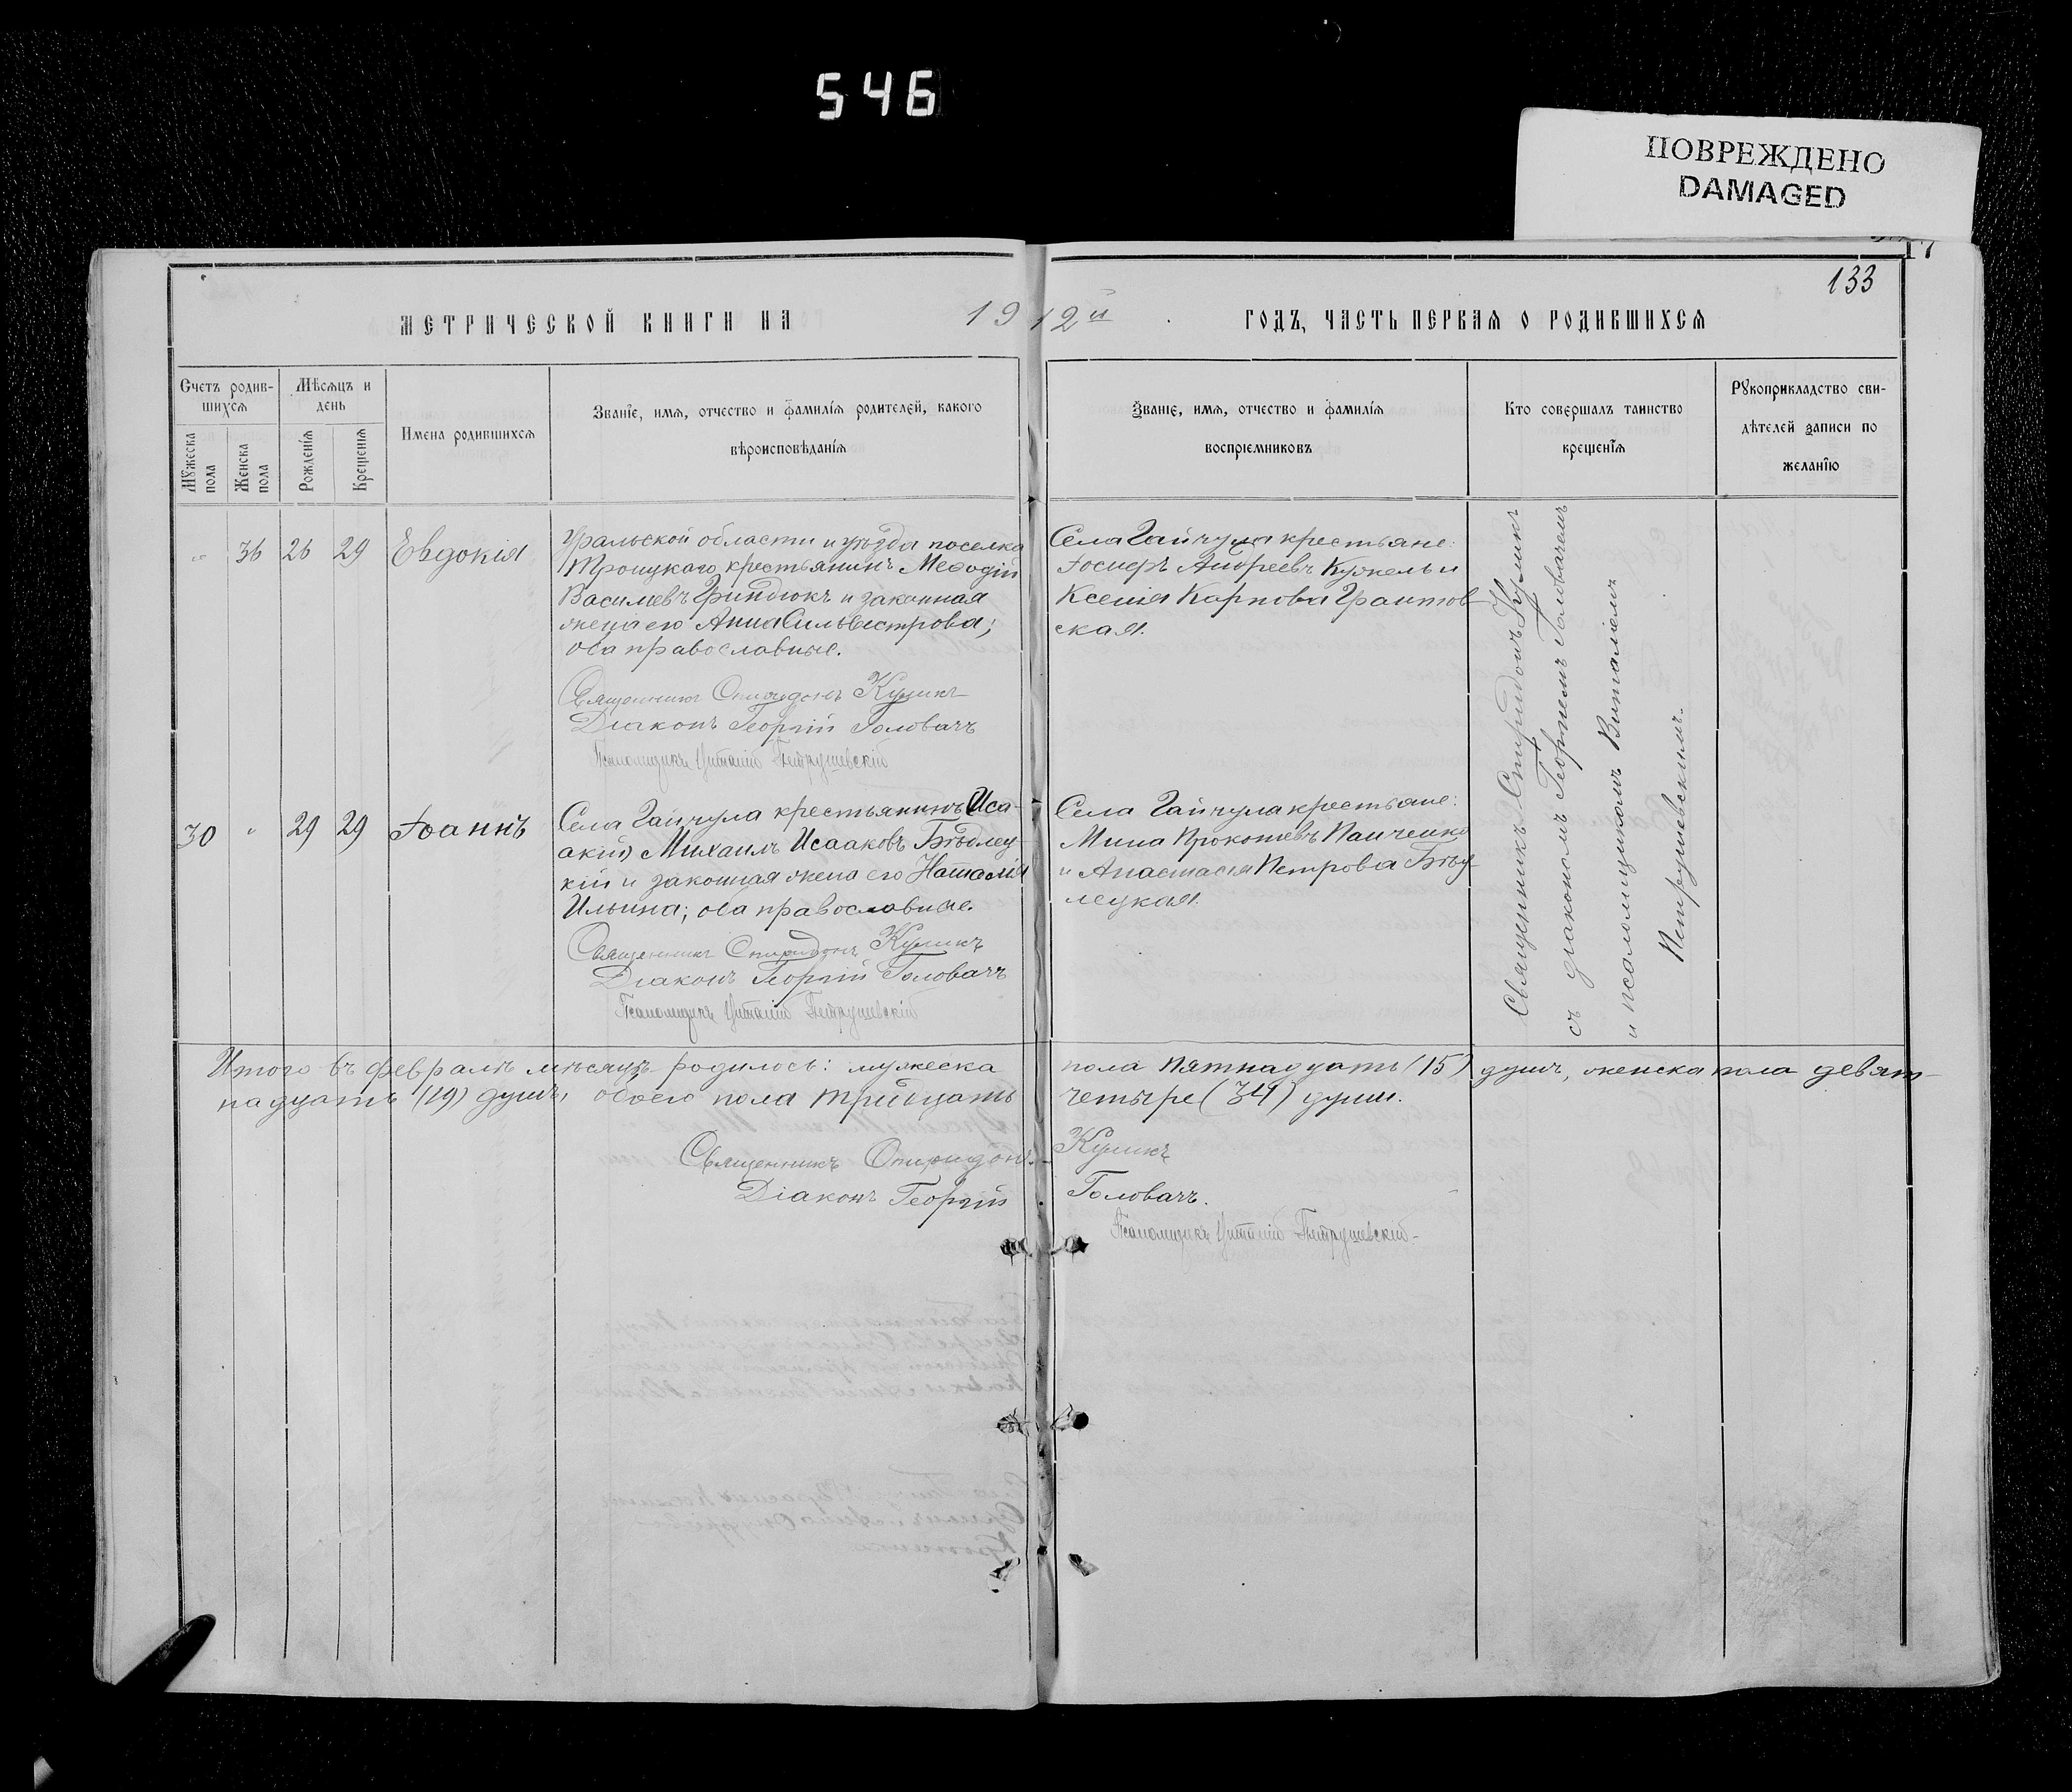 546
ПОВРЕЖДЕНО
DAMAGED
133
МЕТРИЧЕСКОЙ КНИГИ НА 1912й ГОДЪ, ЧАСТЬ ПЕРВАЯ О РОДИВШИХСЯ
Счетъ родив-
шихся
Мужеска пола
Женска пола
Мѣсяцъ и
день
Рожденія
Крещенія
Имена родившихся
Званіе, имя, отчество и фамилія родителей, какого
вѣроисповѣданія
Званіе, имя, отчество и фамилія
воспріемниковъ
Кто совершалъ таинство
крещенія
Рукоприкладство сви-
дѣтелей записи по
желанію
" 36 26 29 Евдокія
Уральской области и уѣзда поселка
Троицкаго крестьянинъ Меѳодій
Васильевъ Гриндюкъ и законная
жена его Анна Сильвестрова;
оба православные.
Священникъ Спиридонъ Куликъ
Діаконъ Георгій Головачъ
Псаломщикъ Виталій Петрушевскій
Села Гайчула крестьяне:
Андреевъ Кужель и
Ксенія Карпова Грантов-
ская.
30 " 29 29 Іоаннъ
Села Гайчула крестьянинъ Иса-
акій) Михаилъ Исааковъ Бѣблец-
кій и законная жена его Наталія
Ильина; оба православные.
Священникъ Спиридонъ Куликъ
Діаконъ Георгій Головачъ
Псаломщикъ Виталій Петрушевскій
Села Гайчула крестьяне:
Мина Прокопіевъ Панченко
и Анастасія Петрова
лецкая.
Священникъ Спиридонъ Куликъ
съ діакономъ Георгіемъ Головачемъ
и псаломщикомъ Виталіемъ
Петрушевскимъ.
Итого въ февралѣ мѣсяцѣ родилось: мужеска пола пятнадцать (15) душъ, женска пола девят-
надцать (19) душъ, обоего пола тридцать четыре (34) души.
Священникъ Спиридонъ Куликъ
Діаконъ Георгій Головачъ.
Псаломщикъ Виталій Петрушевскій